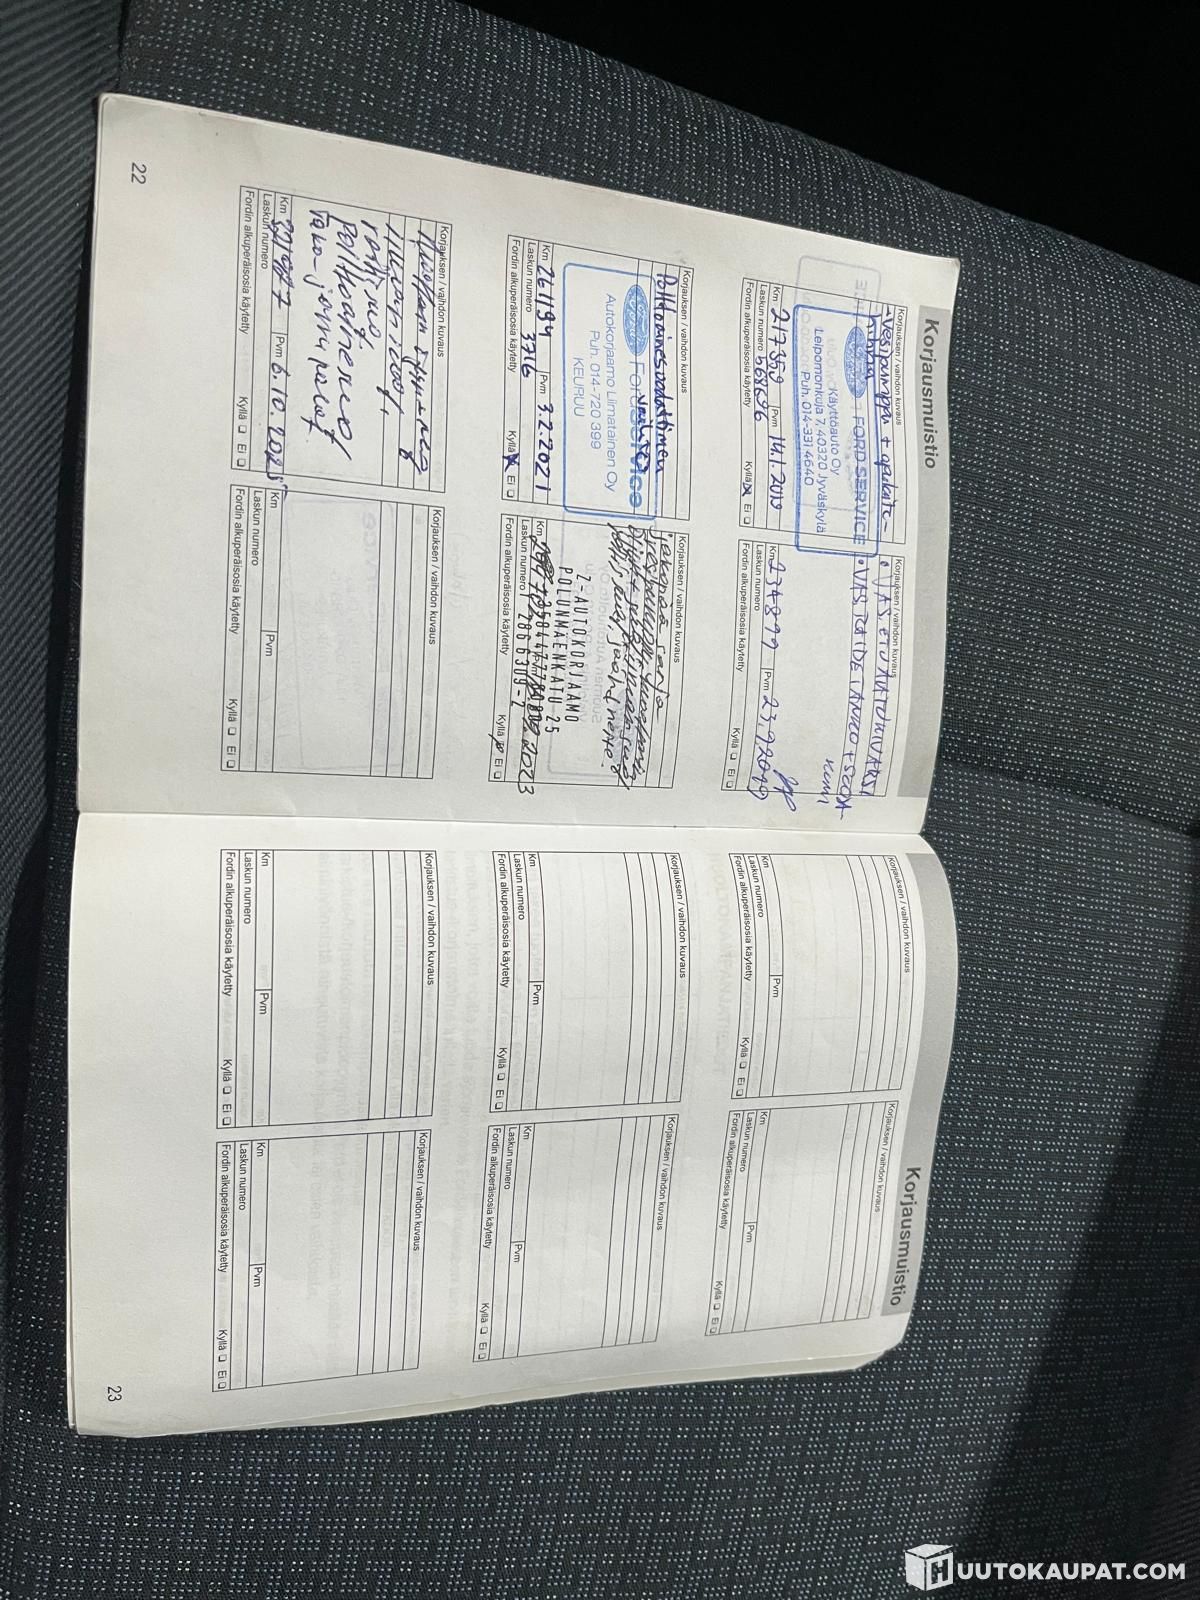 Korjausmuistio
Korjauksen / vaihdon kuvaus
-Vesipumppu + apulaite-
hihna
FORD SERVICE
Käyttöauto Oy
Leipomonkuja 7, 40320 Jyväskylä
Puh. 014-331 4640
Km 217350 Pvm 14.1.2019
Laskun numero 5681636
Fordin alkuperäisosia käytetty Kyllä Ei
Korjauksen / vaihdon kuvaus
• VAS. ETU ALATUKIVARSI
• VAS. RAIDETANKO + SUOJA-
KUMI
Km 234899 Pvm 23.9.2019
Laskun numero
Fordin alkuperäisosia käytetty Kyllä Ei
Korjauksen / vaihdon kuvaus
Polttoainesuodattimen
vaihto
Ford Service
Autokorjaamo Liimatainen Oy
Puh. 014-720 399
KEURUU
Km 261194 Pvm 3.2.2021
Laskun numero 3716
Fordin alkuperäisosia käytetty Kyllä Ei
Korjauksen / vaihdon kuvaus
jakopää sarja
Z-AUTOKORJAAMO
POLUNMÄENKATU 25
Km Pvm 2023
Laskun numero 2866309-2
Fordin alkuperäisosia käytetty Kyllä Ei
Korjauksen / vaihdon kuvaus
Km Pvm 6.10.2025
Laskun numero
Fordin alkuperäisosia käytetty Kyllä Ei
Korjauksen / vaihdon kuvaus
Km Pvm
Laskun numero
Fordin alkuperäisosia käytetty Kyllä Ei
22
Korjausmuistio
Korjauksen / vaihdon kuvaus
Km Pvm
Laskun numero
Fordin alkuperäisosia käytetty Kyllä Ei
Korjauksen / vaihdon kuvaus
Km Pvm
Laskun numero
Fordin alkuperäisosia käytetty Kyllä Ei
Korjauksen / vaihdon kuvaus
Km Pvm
Laskun numero
Fordin alkuperäisosia käytetty Kyllä Ei
Korjauksen / vaihdon kuvaus
Km Pvm
Laskun numero
Fordin alkuperäisosia käytetty Kyllä Ei
Korjauksen / vaihdon kuvaus
Km Pvm
Laskun numero
Fordin alkuperäisosia käytetty Kyllä Ei
Korjauksen / vaihdon kuvaus
Km Pvm
Laskun numero
Fordin alkuperäisosia käytetty Kyllä Ei
23
HUUTOKAUPAT.COM